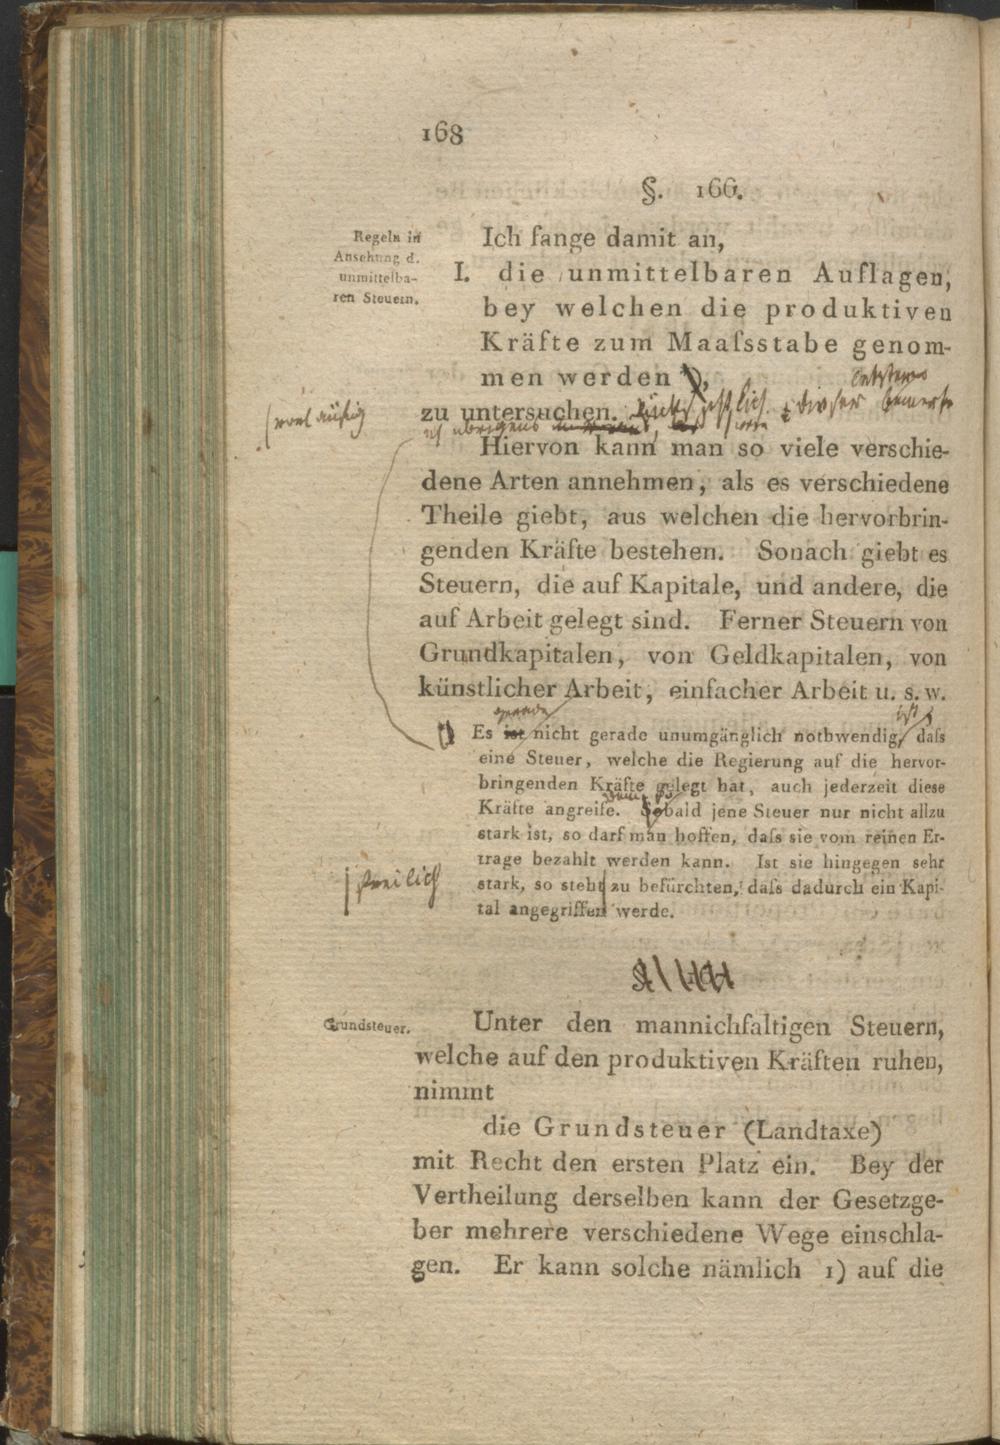 168
§. 166.
Regeln in
Ansehung d.
unmittelba-
ren Steuern.
Ich fange damit an,
I. die unmittelbaren Auflagen,
bey welchen die produktiven
Kräfte zum Maaſsstabe genom-
men werden
letzteres
zu untersuchen. dieser bemerke
vorläufig
ich übrigens
Hiervon kann man so viele verschie-
dene Arten annehmen, als es verschiedene
Theile giebt, aus welchen die hervorbrin-
genden Kräfte bestehen. Sonach giebt es
Steuern, die auf Kapitale, und andere, die
auf Arbeit gelegt sind. Ferner Steuern von
Grundkapitalen, von Geldkapitalen, von
künstlicher Arbeit, einfacher Arbeit u. s. w.
gerade ist
Es ist nicht gerade unumgänglich nothwendig, daſs
eine Steuer, welche die Regierung auf die hervor-
bringenden Kräfte gelegt hat, auch jederzeit diese
Kräfte angreife. Sobald jene Steuer nur nicht allzu
stark ist, so darf man hoffen, daſs sie vom reinen Er-
trage bezahlt werden kann. Ist sie hingegen sehr
freilich
stark, so steht zu befürchten, daſs dadurch ein Kapi-
tal angegriffen werde.
Grundsteuer.
Unter den mannichfaltigen Steuern,
welche auf den produktiven Kräften ruhen,
nimmt
die Grundsteuer (Landtaxe)
mit Recht den ersten Platz ein. Bey der
Vertheilung derselben kann der Gesetzge-
ber mehrere verschiedene Wege einschla-
gen. Er kann solche nämlich 1) auf die